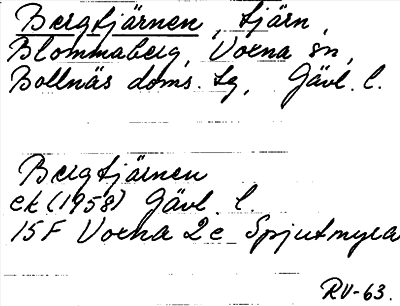 Bergtjärnen, tjärn,
Blommaberg, Voxna sn,
Bollnäs doms. sg, Gävl. l.
Bergtjärnen
ek (1958) Gävl. l.
15F Voxna 2c Spjutmyra
RV-63.